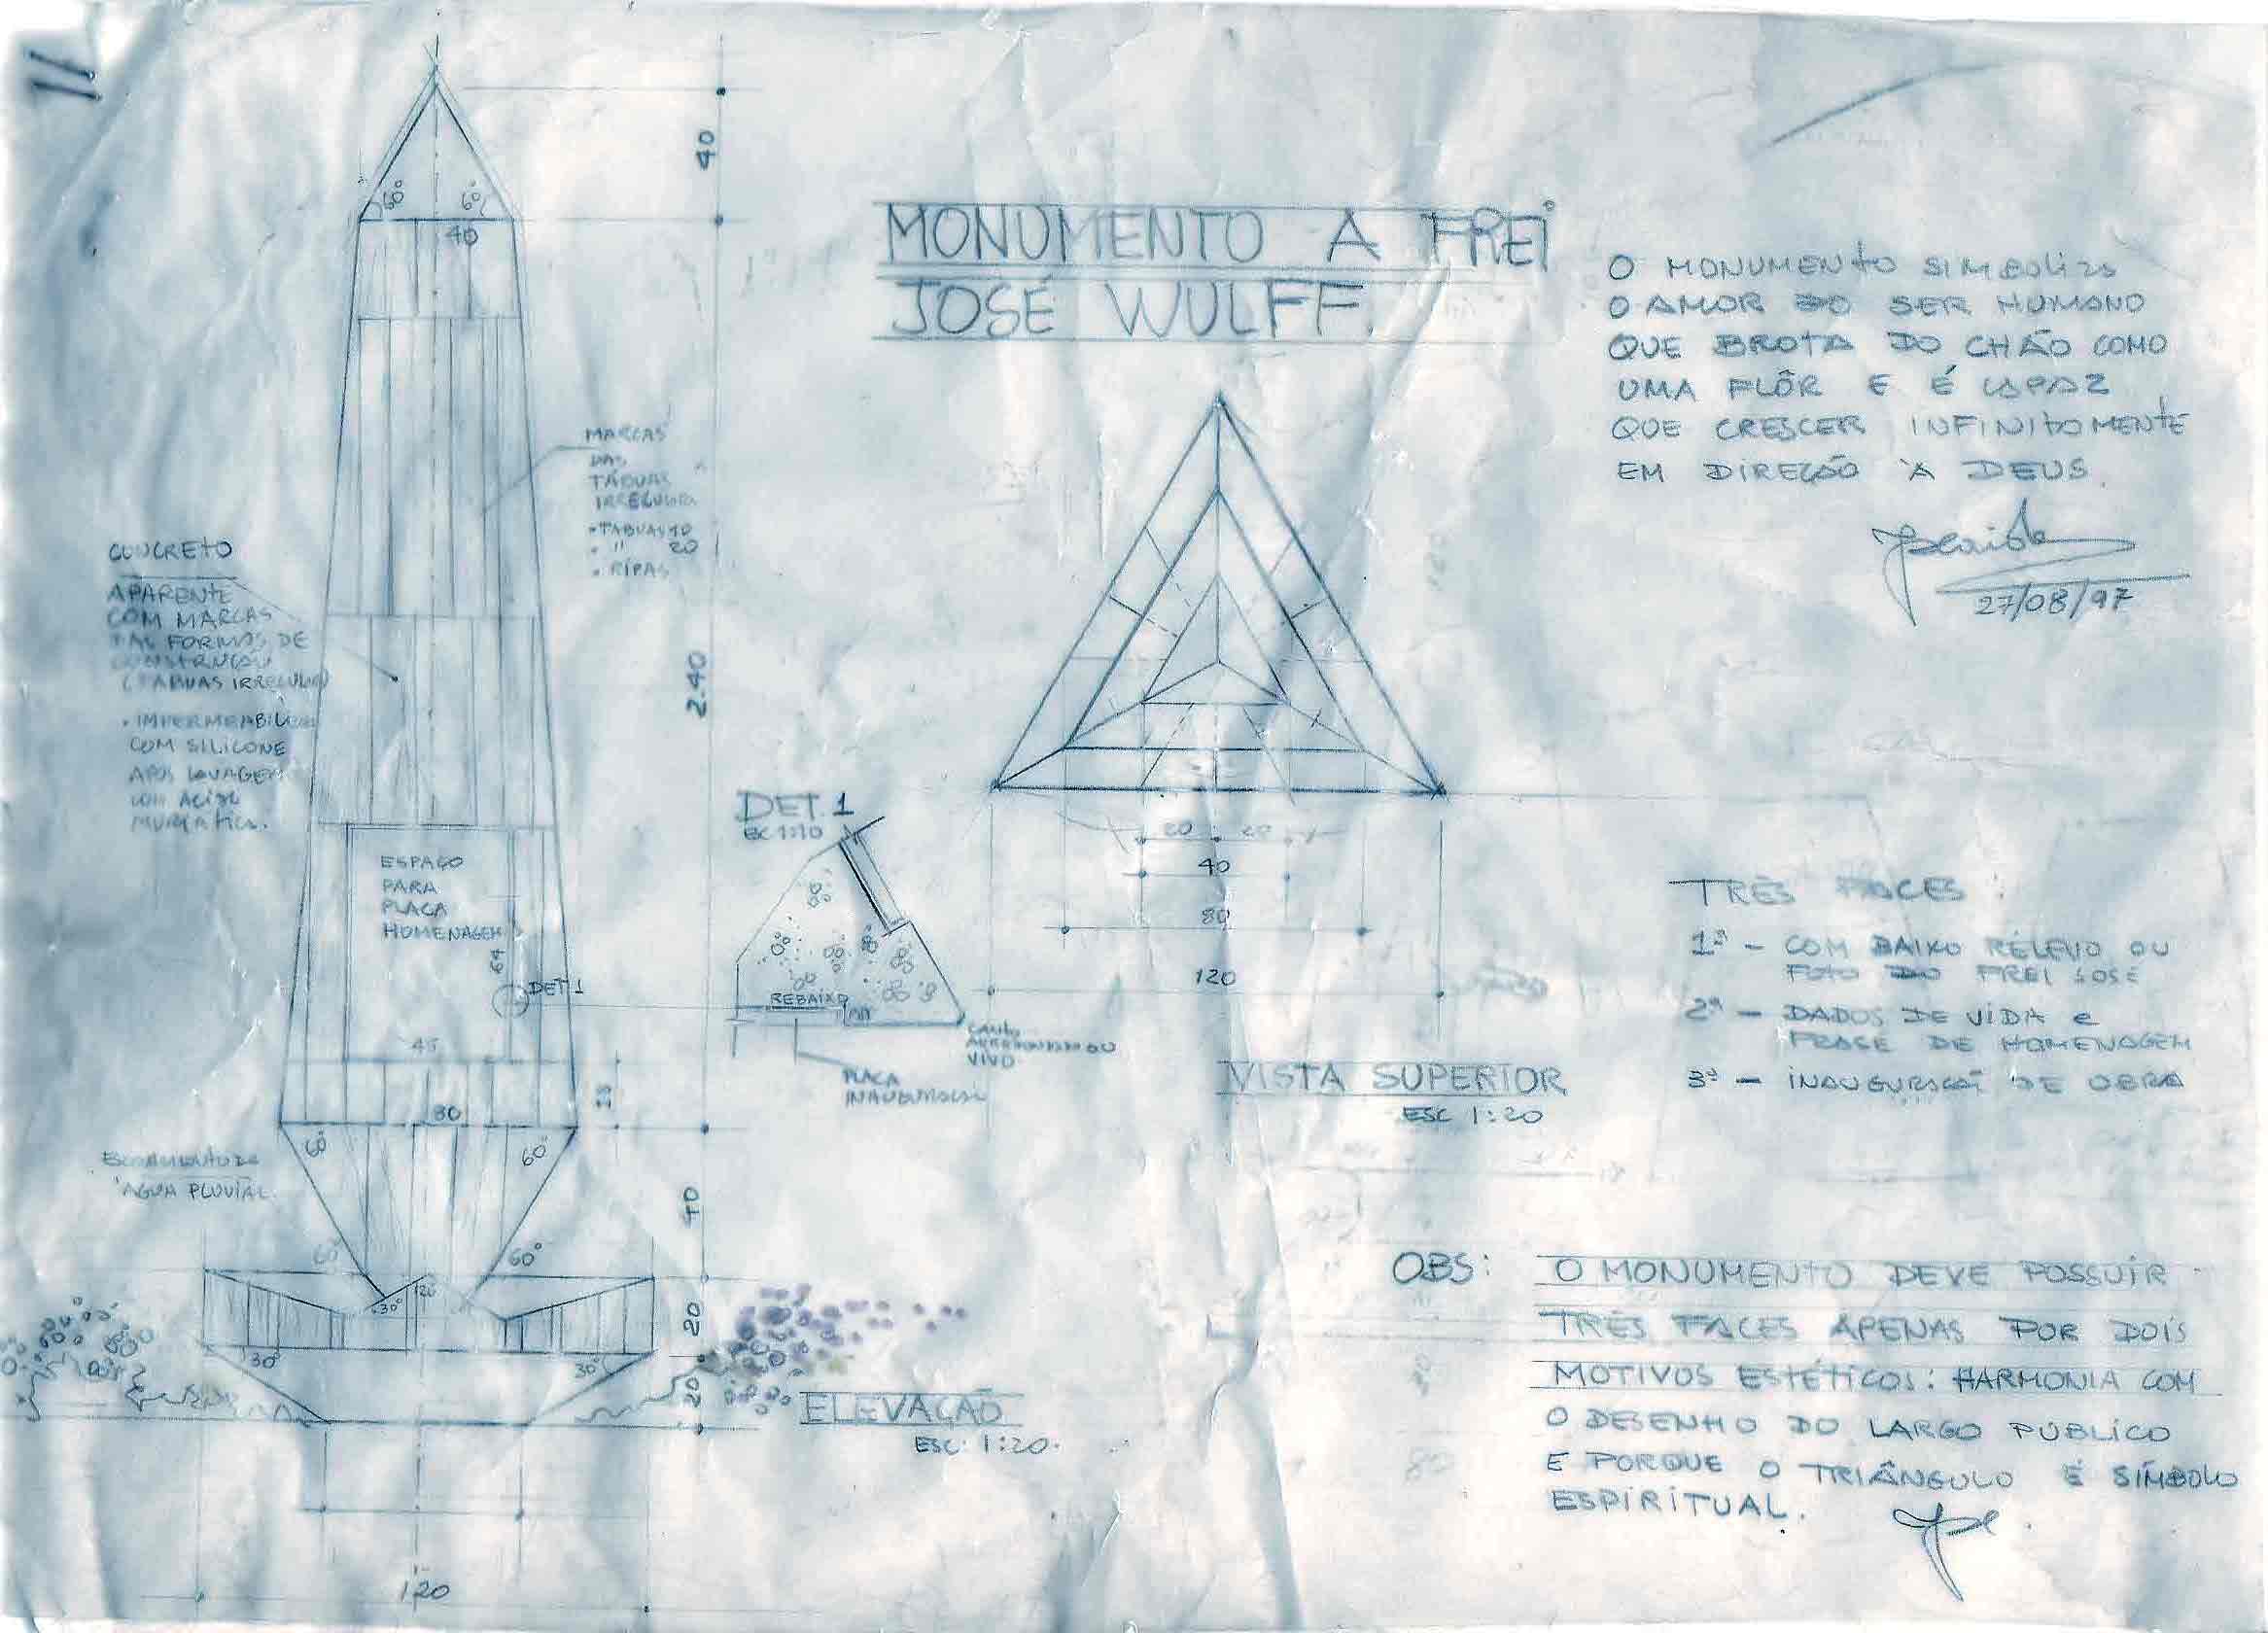 11
MONUMENTO A FREI
JOSÉ WULFF.
O MONUMENTO SIMBOLIZA
O AMOR DO SER HUMANO
QUE BROTA DO CHÃO COMO
UMA FLÔR E É CAPAZ
QUE CRESCER INFINITAMENTE
EM DIREÇÃO À DEUS.
27/08/97
40
60°
60°
40
MARCAS
DAS
TÁBUAS
IRREGULARES
• TABUAS 10
• " 20
• RIPAS
CONCRETO
APARENTE
COM MARCAS
DAS FORMAS DE
CONSTRUÇÃO
(TABUAS IRREGULARES)
• IMPERMEABILIZADO
COM SILICONE
APÓS LAVAGEM
COM ACIDO
MURIATICO.
2.40
ESPAÇO
PARA
PLACA
HOMENAGEM
64
DET 1
45
80
60°
60°
ÁGUA PLUVIAL.
60°
60°
40
30°
120
20
30°
30°
20
ELEVAÇÃO
ESC. 1:20.
120
DET. 1
ESC 1:10
REBAIXO
CANTO
ARREDONDADO OU
VIVO
PLACA
INAUGURAÇÃO
20 20
40
80
120
VISTA SUPERIOR
ESC 1:20
TRÊS FACES:
1ª - COM BAIXO RELEVO OU
FOTO DO FREI JOSÉ
2ª - DADOS DE VIDA e
FRASE DE HOMENAGEM
3ª - INAUGURAÇÃO DE OBRA
OBS: O MONUMENTO DEVE POSSUIR
TRÊS FACES APENAS POR DOIS
MOTIVOS ESTÉTICOS: HARMONIA COM
O DESENHO DO LARGO PÚBLICO
E PORQUE O TRIÂNGULO É SÍMBOLO
ESPIRITUAL.